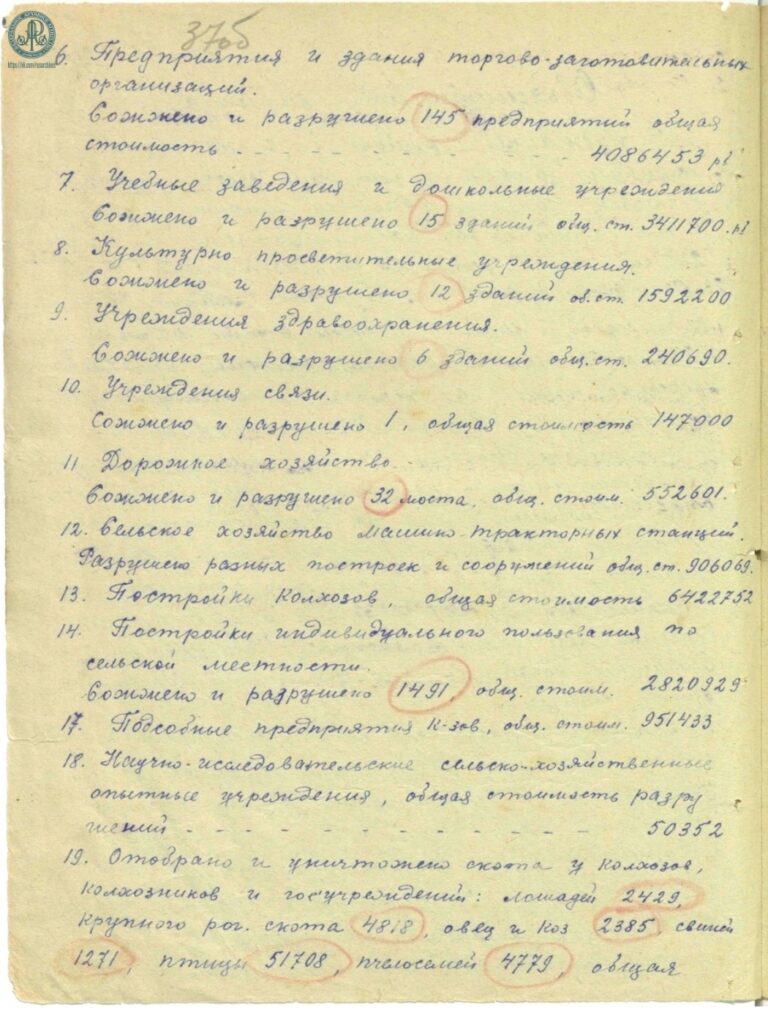 37об
https://vk.com/rusarchives
6. Предприятия и здания торгово-заготовительных
организаций.
Сожжено и разрушено 145 предприятий общая
стоимость - - - - - - - - 4086453 р
7. Учебные заведения и дошкольные учреждения
Сожжено и разрушено 15 зданий общ. ст. 3411700. р
8. Культурно просветительные учреждения.
Сожжено и разрушено 12 зданий об. ст. 1592200
9. Учреждения здравоохранения.
Сожжено и разрушено 6 зданий общ. ст. 240690.
10. Учреждения связи.
Сожжено и разрушено 1, общая стоимость 147000
11 Дорожное хозяйство.
Сожжено и разрушено 32 моста, общ. стоим. 552601.
12. Сельское хозяйство машино тракторных станций.
Разрушено разных построек и сооружений общ. ст. 906069.
13. Постройки Колхозов, общая стоимость 6422752
14. Постройки индивидуального пользования по
сельской местности.
Сожжено и разрушено 1491, общ. стоим. 2820929
17. Подсобные предприятия к-зов, общ. стоим. 951433
18. Научно-исследовательские сельско-хозяйственные
опытные учреждения, общая стоимость разру
шений - - - - - - - - - - - 50352
19. Отобрано и уничтожено скота у колхозов,
колхозников и госучреждений: лошадей 2429,
крупного рог. скота 4818, овец и коз 2385 свиней
1271, птицы 51708, пчелосемей 4779, общая